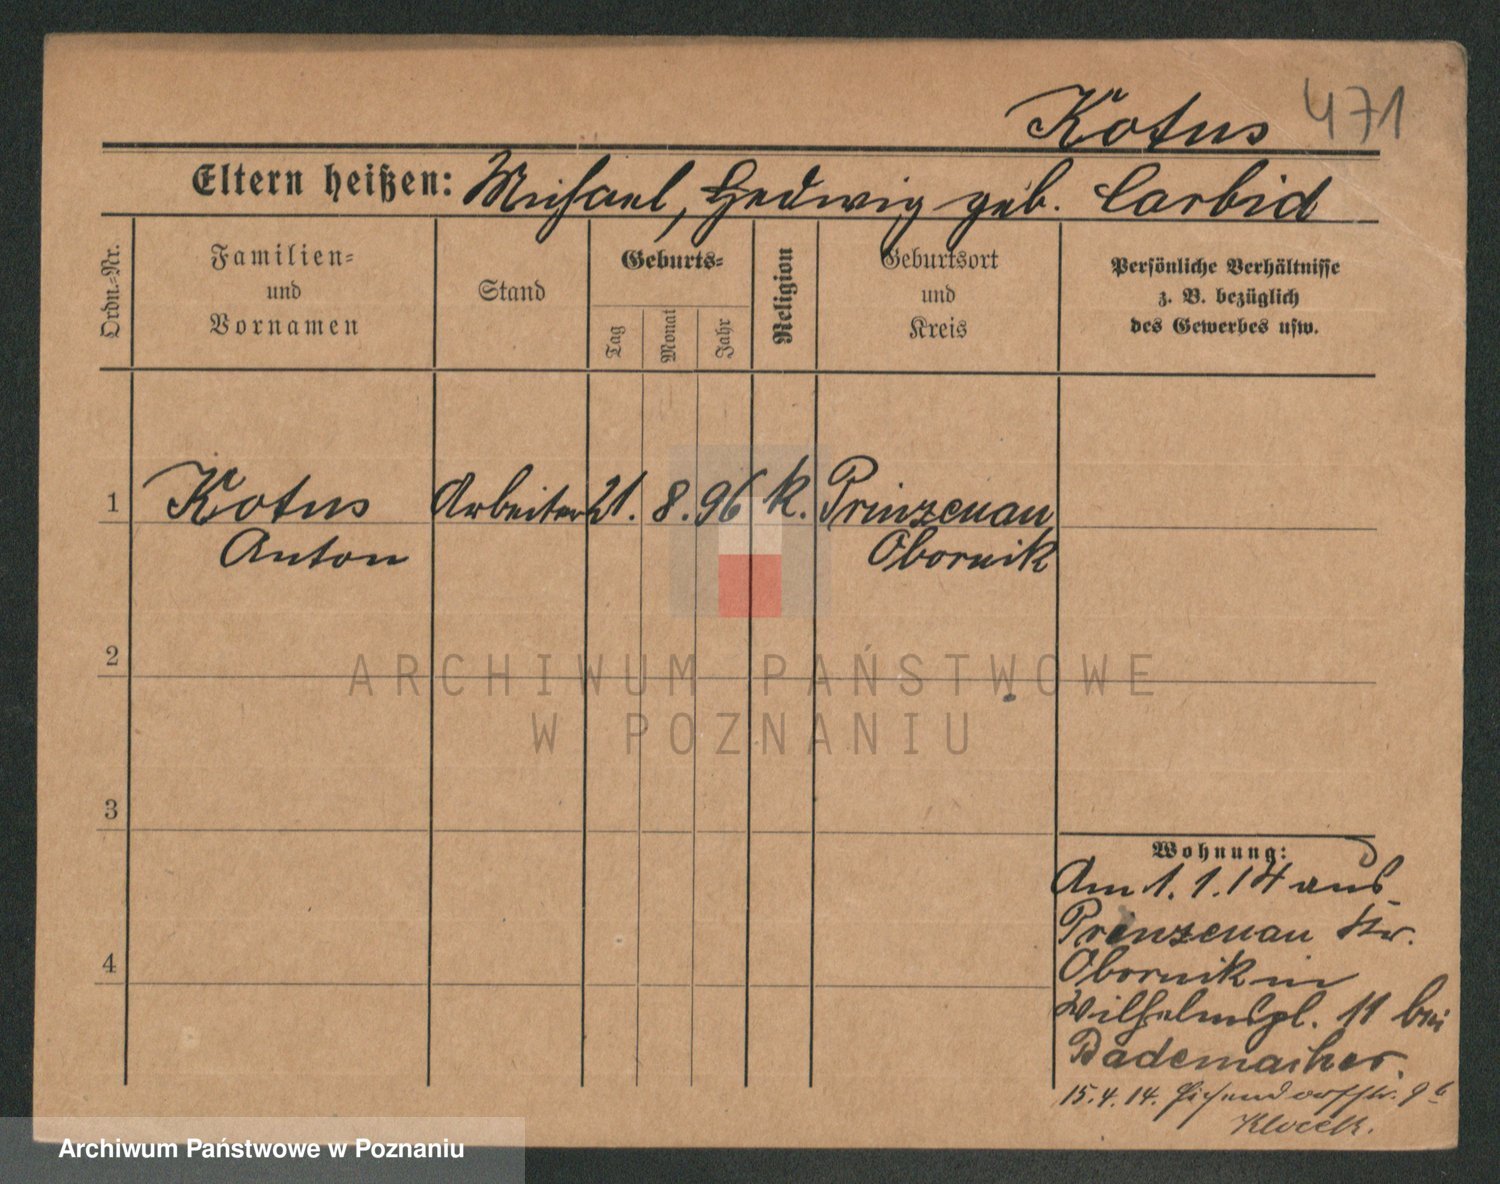 Kotus 471
Eltern heißen: Michael, Hedwig geb. Carbid
Ordn.-Nr.
Familien-
und
Vornamen
Stand
Geburts-
Tag
Monat
Jahr
Religion
Geburtsort
und
Kreis
Persönliche Verhältnisse
z. B. bezüglich
des Gewerbes usw.
1 Kotus Arbeiter 21. 8. 96 k. Prinzenau
Anton Obornik
2
ARCHIWUM PAŃSTWOWE
W POZNANIU
3
Wohnung:
Am 1. 1. 14 aus
Prinzenau Kr.
4
Obornik in
Wilhelmspl. 11 bei
Bademacher.
15. 4. 14. 9
Klocek.
Archiwum Państwowe w Poznaniu